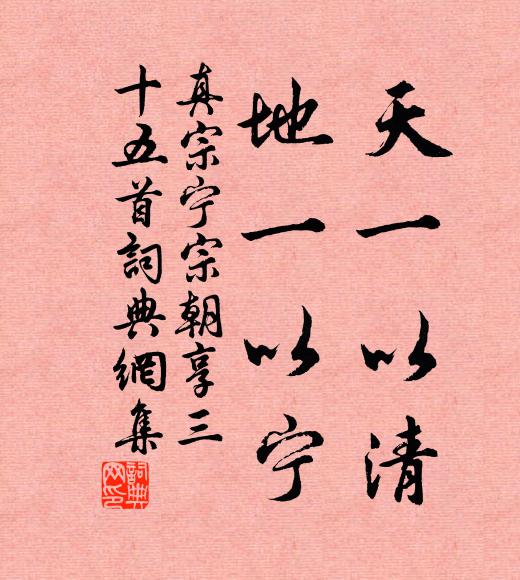 天一以清
地一以宁
真宗宁宗朝享三
十五首詞典網集
詞典
网印